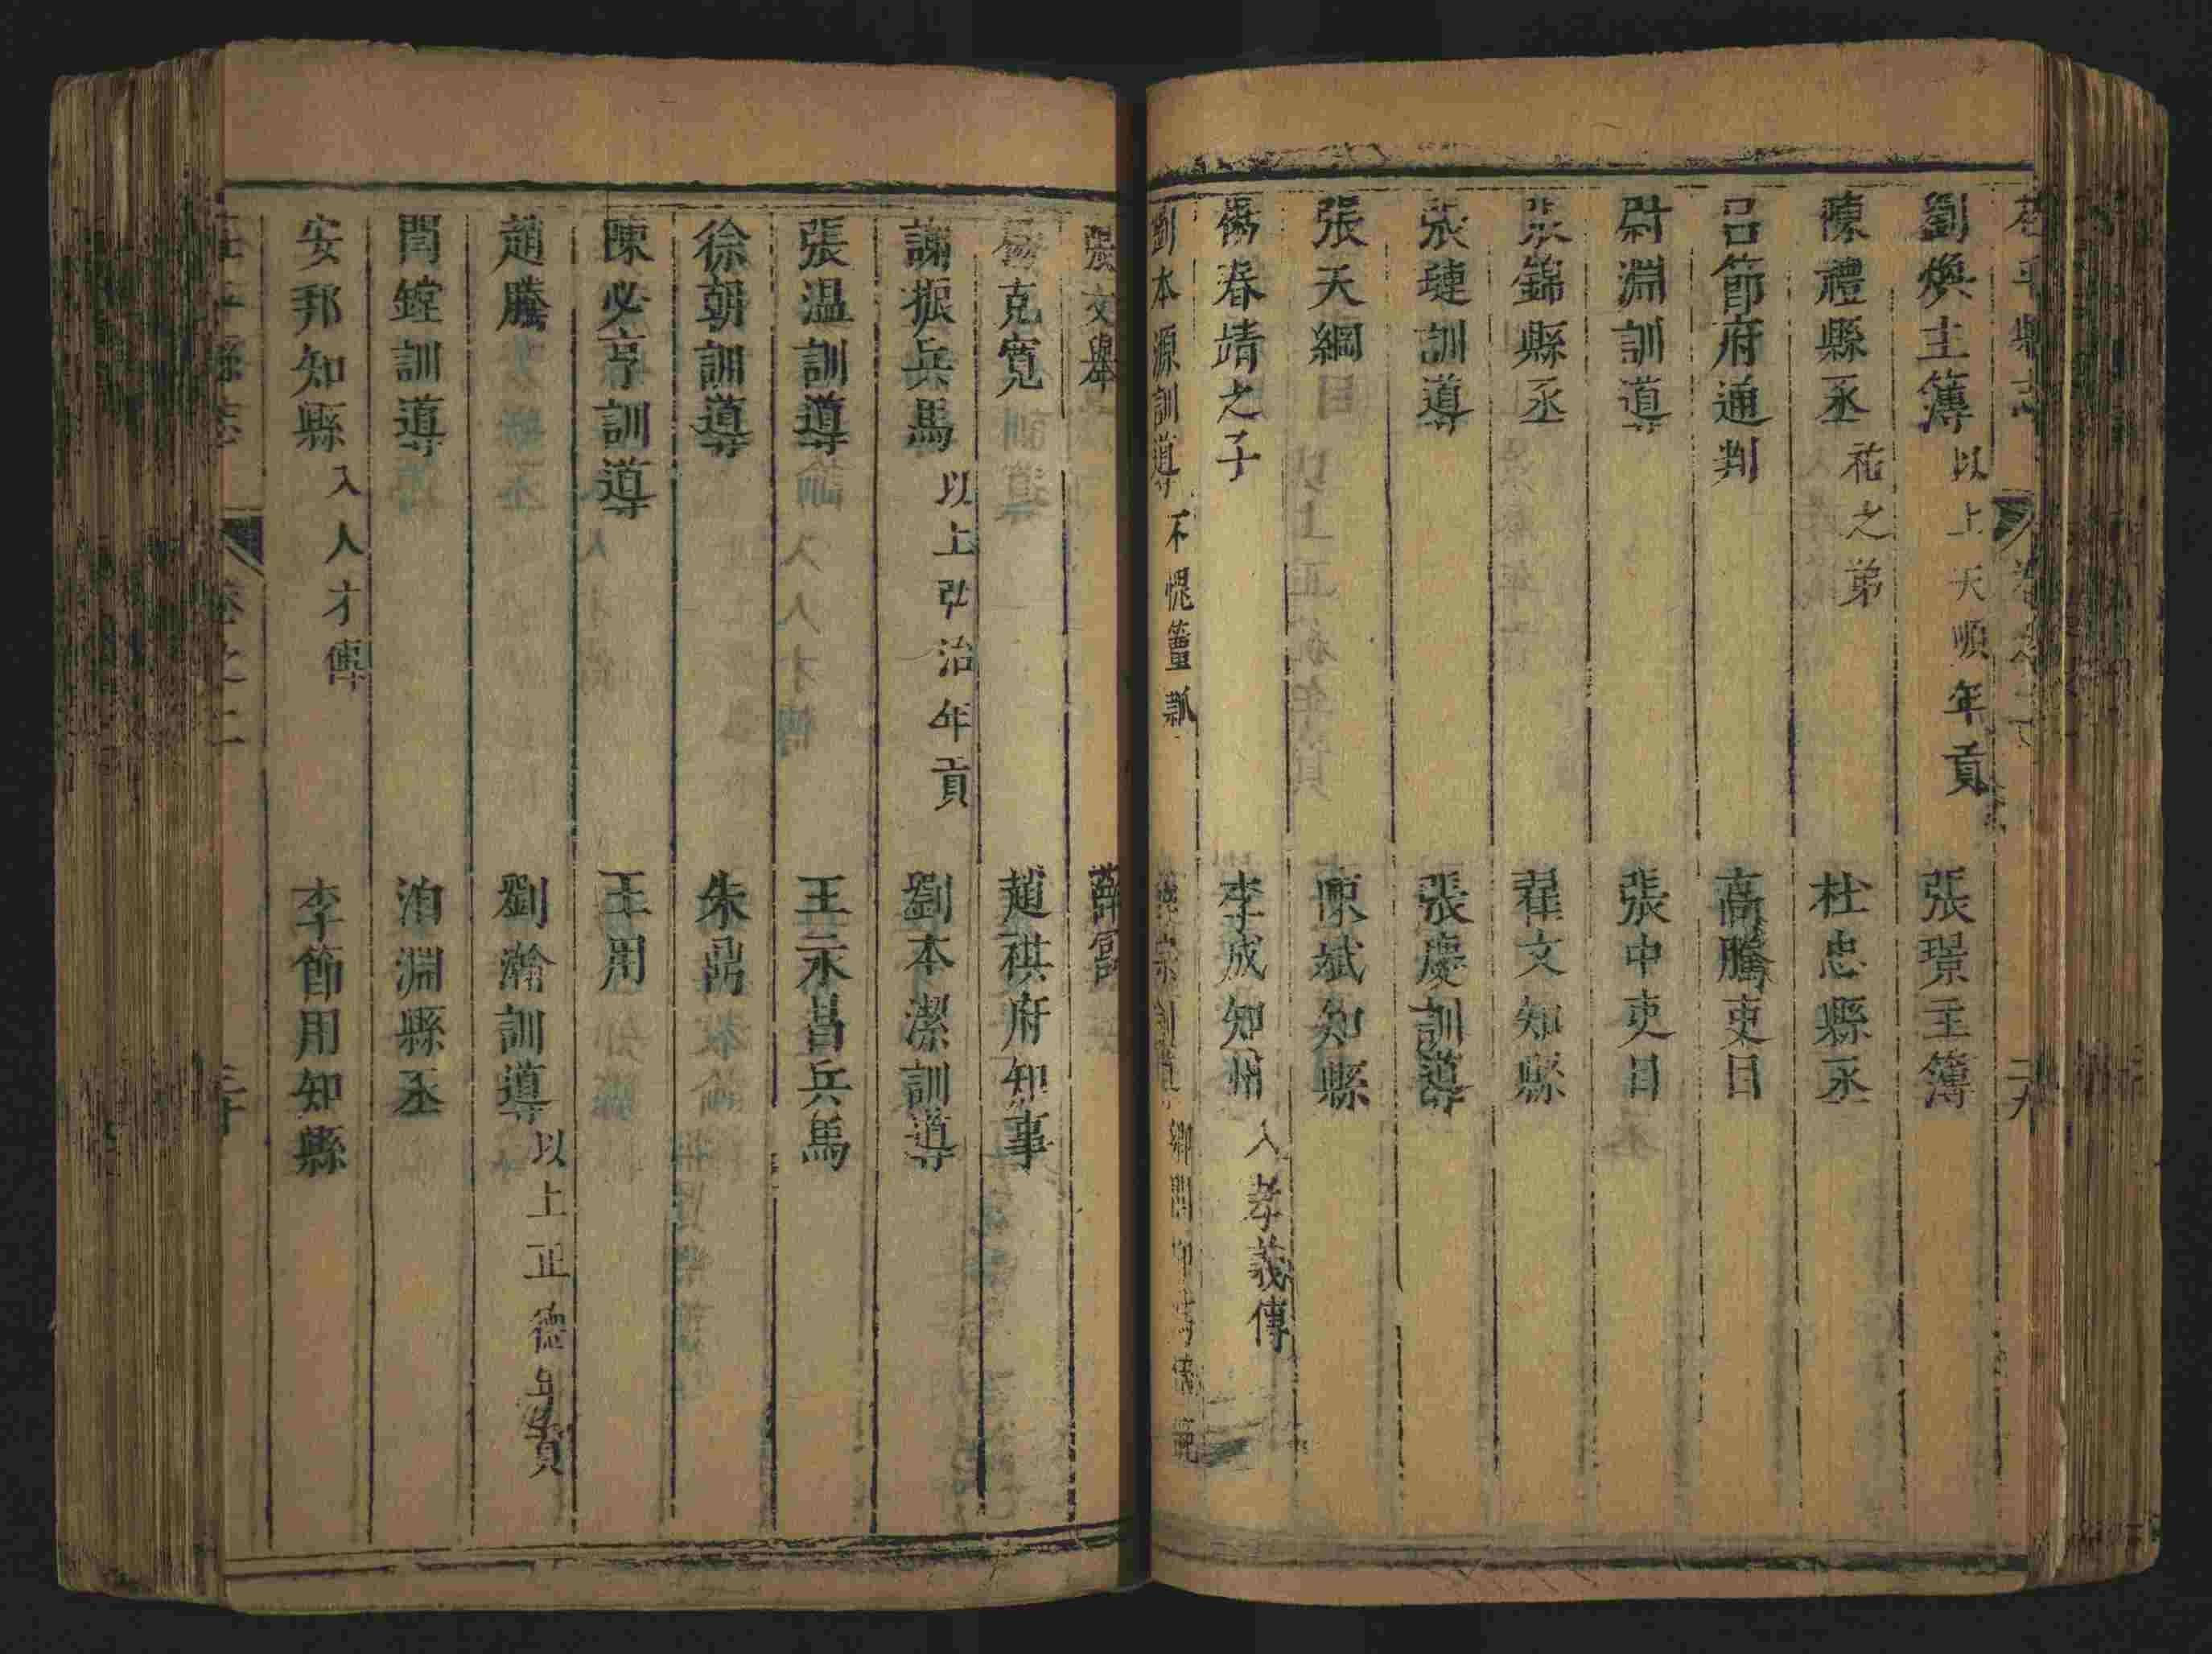 劉煥主簿 以上天順年貢 張璟主簿
陳禮縣丞 祐之弟 杜忠縣丞
呂節府通判 高騰吏目
尉淵訓導 張中吏目
張錦縣丞 翟文知縣
張璉訓導 張慶訓導
張天綱 陳斌知縣
楊春靖之子 李成知州 入孝義傳
劉本源訓導 不愧簠 宗訓導 鄉閭
二九
張文舉 薛
楊克寬 趙祺府知事
謝振兵馬 以上弘治年貢 劉本潔訓導
張溫訓導 王永昌兵馬
徐朝訓導 朱鼎
陳必亨訓導 王用
趙騰 劉瀚訓導 以上正德年貢
閆鏜訓導 泊淵縣丞
安邦知縣 入人才傳 李節用知縣
卷之二 三十